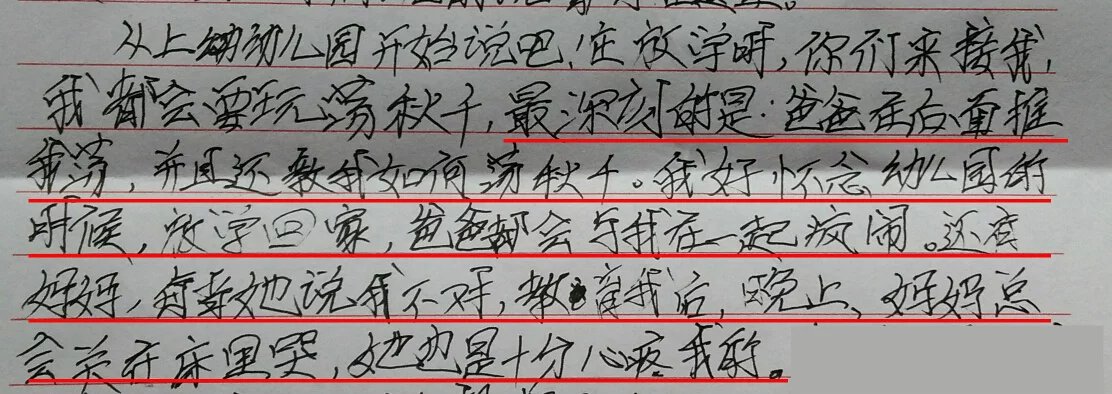 从上幼幼儿园开始说吧,在放学时,你们来接我,
我都会要玩荡秋千,最深刻的是:爸爸在后面推
我荡,并且还教我如何荡秋千。我好怀念幼儿园的
时候,放学回家,爸爸都会与我在一起疯闹。还有
妈妈,每每她说我不对,教育我后,晚上,妈妈总
会关在床里哭,她也是十分心疼我的。